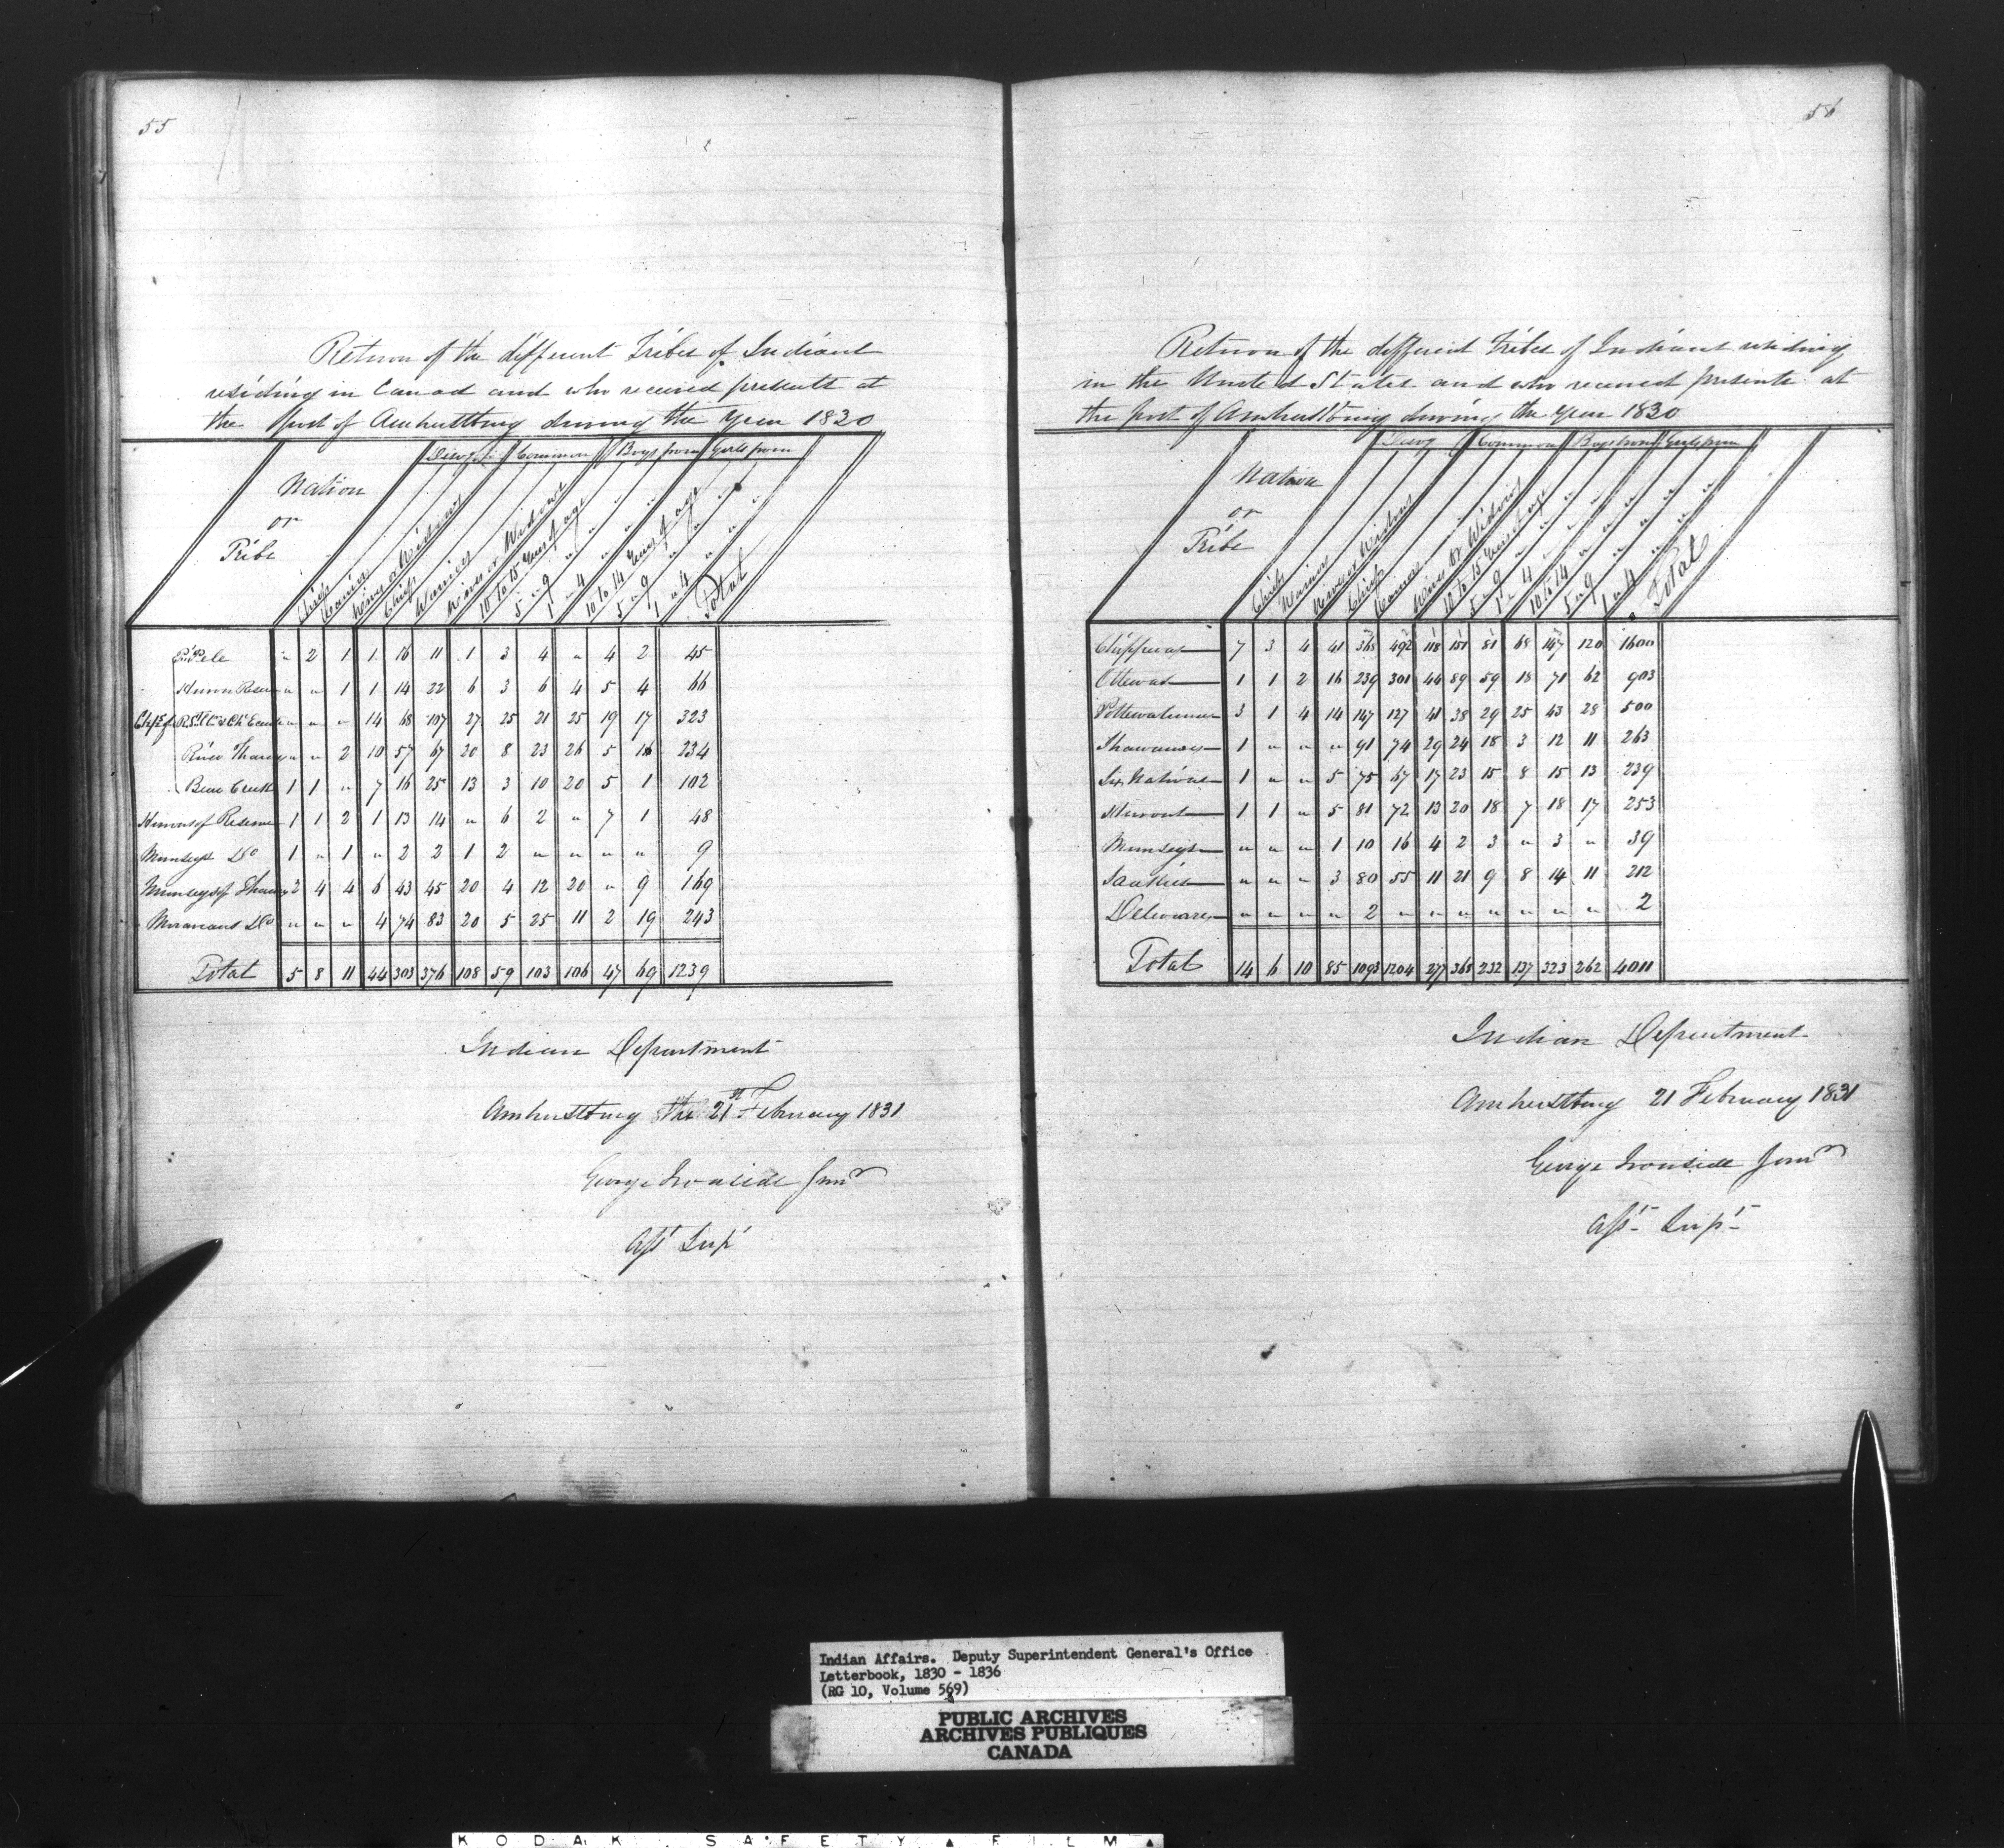 55
Return of the different Tribes of Indians
residing in Canad and who received presents at
the Post of Amherstburg during the Year 1830
Nation
or
Tribe
Common
Boys from
Girls from
Chiefs
Warriors
Wives or Widows
Chiefs
Warriors
Wives or Widows
10 to 15 Years of age
5 " 9 " "
1 " 4 " "
10 to 14 Years of age
5 " 9 " "
1 " 4 " "
Total
Pt Pele " 2 1 1 16 11 1 3 4 " 4 2 45
Huron Reserve " " 1 1 14 22 6 3 6 4 5 4 66
Chips of R. St. Cl. & Ch. Ecarte " " " 14 68 107 27 25 21 25 19 17 323
River Thames " " 2 10 57 67 20 8 23 26 5 16 234
Bear Creek 1 1 " 7 16 25 13 3 10 20 5 1 102
Hurons of Reserve 1 1 2 1 13 14 " 6 2 " 7 1 48
Munseys Do 1 " 1 " 2 2 1 2 " " " " 9
Munseys of Thames 2 4 4 6 43 45 20 4 12 20 " 9 169
Moravians Do " " " 4 74 83 20 5 25 11 2 19 243
Total 5 8 11 44 303 376 108 59 103 106 47 69 1239
Indian Department
Amherstburg the 21st February 1831
George Ironside Junr
Asst Supt
56
Return of the different Tribes of Indians residing
in the United States and who received presents at
the post of Amherstburg during the year 1830
Nation
or
Tribe
Common
Boys from
Girls from
Chiefs
Warriors
Wives or Widows
Chiefs
Warriors
Wives or Widows
10 to 15 Years of age
5 " 9 " "
1 " 4 " "
10 to 14 " "
5 " 9 " "
1 " 4 " "
Total
Chippewas 7 3 4 41 368 492 118 151 81 68 147 120 1600
Ottewas 1 1 2 16 239 301 44 89 59 18 71 62 903
Pottewatemies 3 1 4 14 147 127 41 38 29 25 43 28 500
Shawanees 1 " " " 91 74 29 24 18 3 12 11 263
Six Nations 1 " " 5 75 67 17 23 15 8 15 13 239
Hurons 1 1 " 5 81 72 13 20 18 7 18 17 253
Munseys " " " 1 10 16 4 2 3 " 3 " 39
Saukies " " " 3 80 55 11 21 9 8 14 11 212
Delewares " " " " 2 " " " " " " " 2
Total 14 6 10 85 1093 1204 277 368 232 137 323 262 4011
Indian Department
Amherstburg 21 February 1831
George Ironside Junr
Asst Supt
Indian Affairs. Deputy Superintendent General's Office
Letterbook, 1830 - 1836
(RG 10, Volume 569)
PUBLIC ARCHIVES
ARCHIVES PUBLIQUES
CANADA
KODAK SAFETY FILM